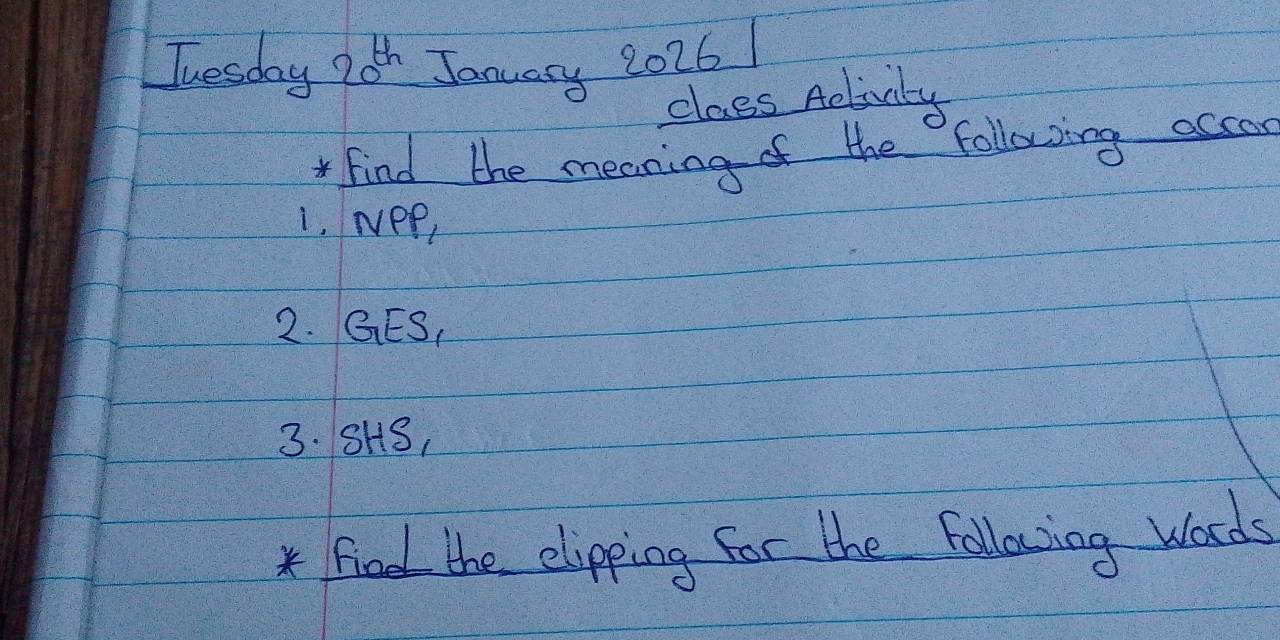 Tuesday 20th January 2026
class Activity
* Find the meaning of the following
1. NPP,
2. GES,
3. SHS,
* Find the clipping for the following words